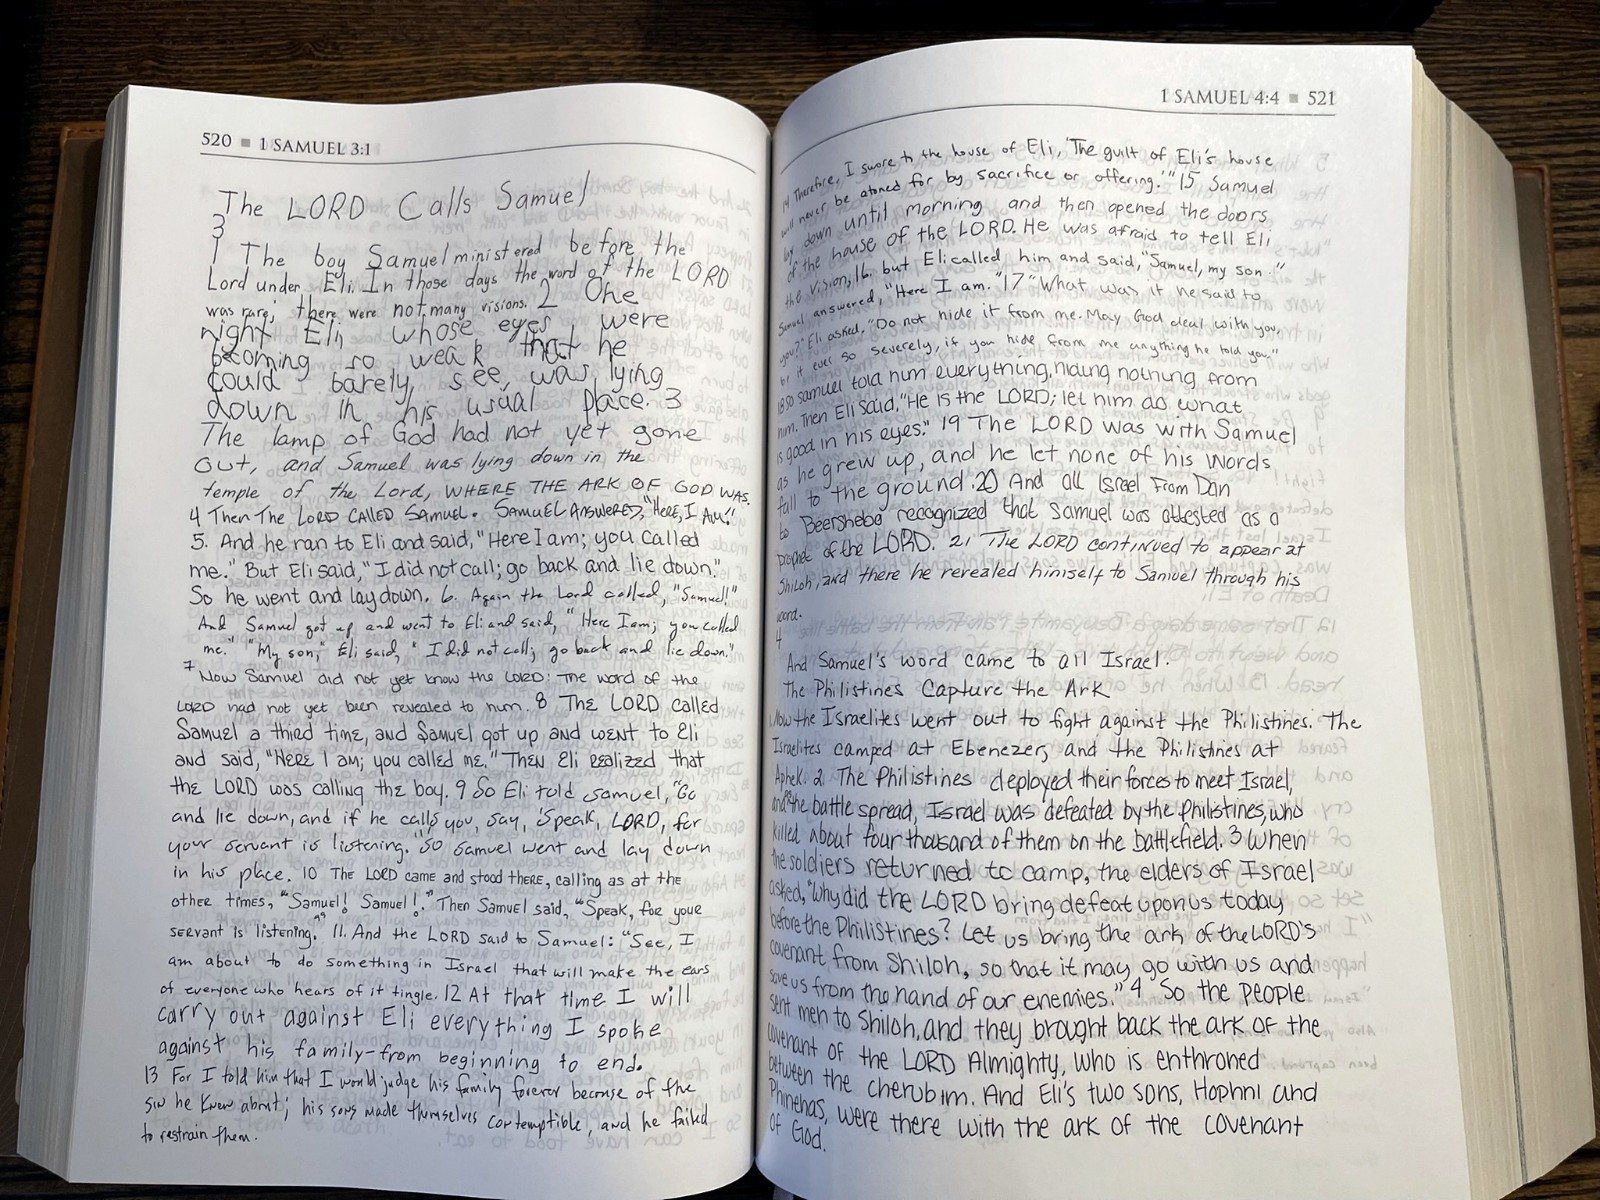 520 ■ 1 SAMUEL 3:1
The LORD Calls Samuel
3
1 The boy Samuel ministered before the
Lord under Eli. In those days the word of the LORD
was rare; there were not many visions. 2 One
night Eli, whose eyes were
becoming so weak that he
could barely see, was lying
down in his usual place. 3
The lamp of God had not yet gone
out, and Samuel was lying down in the
temple of the Lord, WHERE THE ARK OF GOD WAS.
4 Then The LORD CALLED SAMUEL. SAMUEL ANSWERED, "HERE, I AM."
5. And he ran to Eli and said, "Here I am; you called
me." But Eli said, "I did not call; go back and lie down."
So he went and lay down. 6. Again the Lord called, "Samuel!"
And Samuel got up and went to Eli and said, "Here I am; you called
me." "My son," Eli said, "I did not call; go back and lie down."
7 Now Samuel did not yet know the LORD: The word of the
LORD had not yet been revealed to him. 8 THE LORD called
Samuel a third time, and Samuel got up and went to Eli
and said, "HERE I am; you called me." THEN Eli realized that
the LORD was calling the boy. 9 So Eli told Samuel, "Go
and lie down, and if he calls you, say, 'Speak, LORD, for
your servant is listening.'" So Samuel went and lay down
in his place. 10 The LORD came and stood there, calling as at the
other times, "Samuel! Samuel!." Then Samuel said, "Speak, for your
servant is listening." 11. And the LORD said to Samuel: "See, I
am about to do something in Israel that will make the ears
of everyone who hears of it tingle. 12 At that time I will
carry out against Eli everything I spoke
against his family-from beginning to end.
13 For I told him that I would judge his family forever because of the
sin he knew about; his sons made themselves contemptible, and he failed
to restrain them.
1 SAMUEL 4:4 ■ 521
14 Therefore, I swore to the house of Eli, 'The guilt of Eli's house
will never be atoned for by sacrifice or offering.'" 15 Samuel
lay down until morning and then opened the doors
of the house of the LORD. He was afraid to tell Eli
the vision, 16. but Eli called him and said, "Samuel, my son."
Samuel answered, "Here I am." 17 "What was it he said to
you?" Eli asked. "Do not hide it from me. May God deal with you,
be it ever so severely, if you hide from me anything he told you."
18 So Samuel told him everything, hiding nothing from
him. Then Eli said, "He is the LORD; let him do what
is good in his eyes." 19 The LORD was with Samuel
as he grew up, and he let none of his words
fall to the ground. 20 And all Israel From Dan
to Beersheba recognized that Samuel was attested as a
Prophet of the LORD. 21 The LORD continued to appear at
Shiloh, and there he revealed himself to Samuel through his
word.
4
And Samuel's word came to all Israel.
The Philistines Capture the Ark
Now the Israelites went out to fight against the Philistines. The
Israelites camped at Ebenezer, and the Philistines at
Aphek. 2. The Philistines deployed their forces to meet Israel,
and as the battle spread, Israel was defeated by the Philistines, who
killed about four thousand of them on the battlefield. 3 When
the soldiers returned to camp, the elders of Israel
asked, "Why did the LORD bring defeat upon us today
before the Philistines? Let us bring the ark of the LORD'S
covenant from Shiloh, so that it may go with us and
save us from the hand of our enemies." 4 So the people
sent men to Shiloh, and they brought back the ark of the
covenant of the LORD Almighty, who is enthroned
between the cherubim. And Eli's two sons, Hophni and
Phinehas, were there with the ark of the covenant
of God.